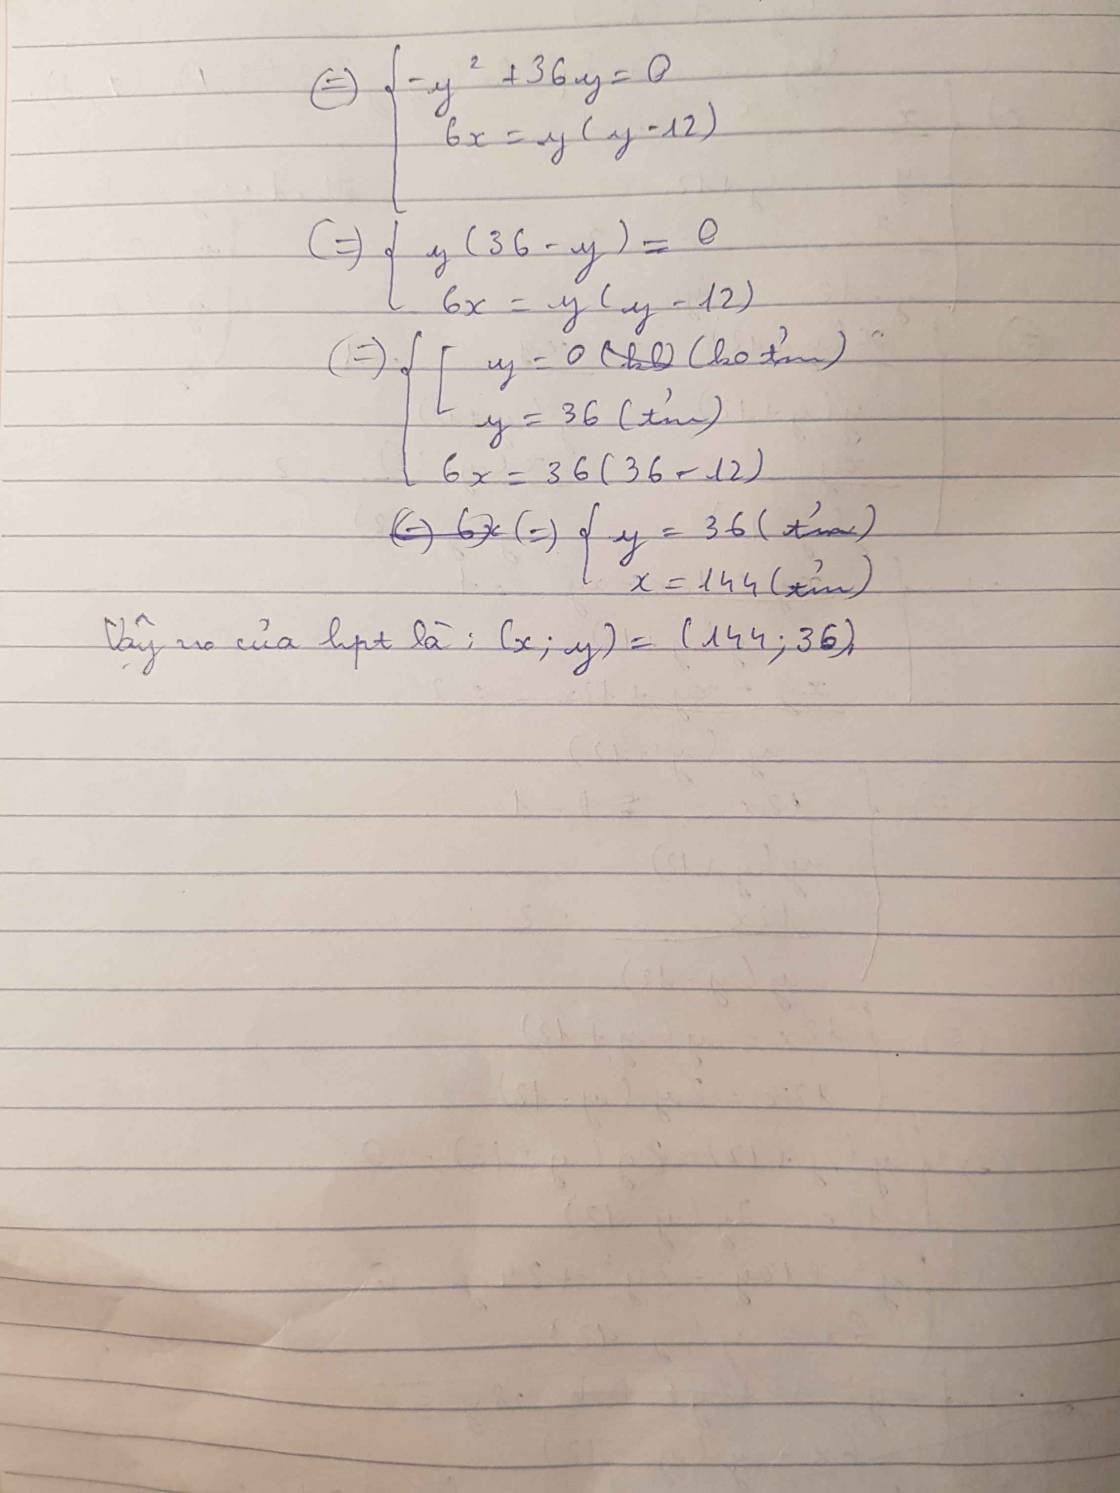 (=) { -y² + 36y = 0
6x = y(y - 12)
(=) { y(36 - y) = 0
6x = y(y - 12)
(=) { [ y = 0 (ko t/m)
y = 36 (t/m)
6x = 36(36 - 12)
(=) 6x (=) { y = 36 (t/m)
x = 144 (t/m)
Vậy no của hpt là: (x; y) = (144; 36).